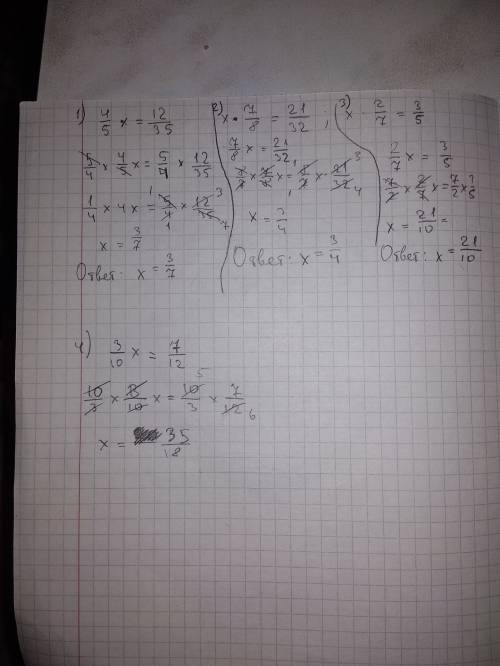 1) 4/5 x = 12/35
5/4 × 4/5 x = 5/4 × 12/35
1/4 × 4x = 5/4 × 12/35
x = 3/7
Ответ: x = 3/7
2) x · 7/8 = 21/32 ;
7/8 x = 21/32
x = 3/4
Ответ: x = 3/4
3) x · 2/7 = 3/5
2/7 x = 3/5
7/2 × 2/7 x = 7/2 × 3/5
x = 21/10 =
Ответ: x = 21/10
4) 3/10 x = 7/12
10/3 × 3/10 x = 10/3 × 7/12
x = 35/18